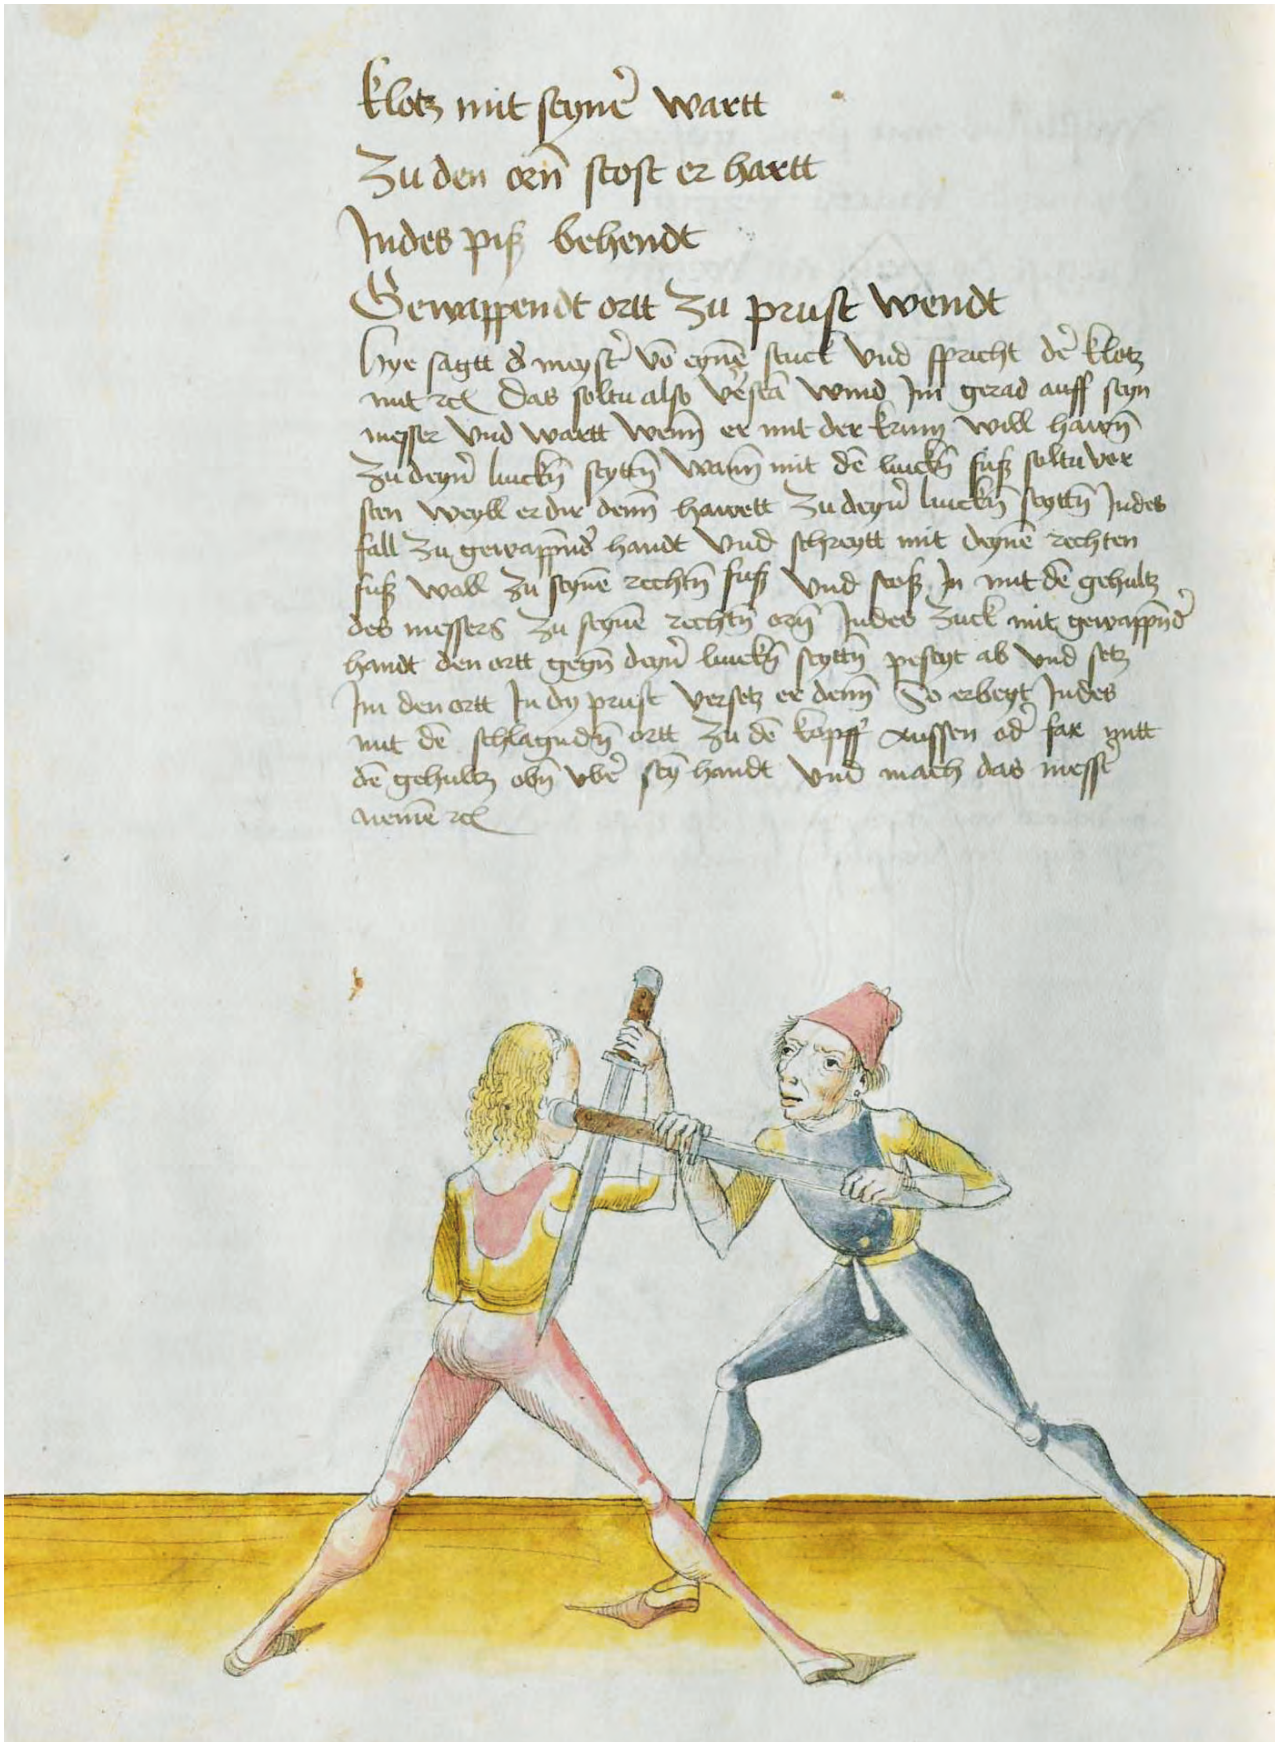 klotz mit seyner̄ wartt
Zu den orn̄ stost er hartt
Indes piß behendt
Gewappendt ortt zu prust wendt
Hye sagtt d̄ meystr̄ vō eynē stuck vnd spricht der̄ klotz
mit ⁊c̄ Das soltu also ver̄stā wind Im gerad auff seyn
messer vnd wartt wenn̄ er mit der krum will hawn̄
zu deyn̄ linckn̄ seyttn̄ wann̄ mit dē linckn̄ fuß soltu vor
sten weyll er dir denn̄ hawett zu deyn̄ linckn̄ seyttn̄ Indes
fall zu gewappn̄d̄ handt vnd schreytt mit deynē rechten
fuß woll zu seynē rechtn̄ fuß vnd stoß In mit dē gehultz
des messers zu seynē rechtn̄ orn̄ Indes zuck mit gewappn̄d̄
handt den ortt gegn̄ deyn̄ linckn̄ seyttn̄ peseyt ab vnd setz
Im den ortt In dy prust versetz er denn̄ So erbeyt Indes
mit dē schlagndn̄ ortt zu dē kopff aussen od̄ far mitt
dē gehultz obn̄ vber̄ seyn̄ handt vnd mach das messer̄
nemē ⁊c̄